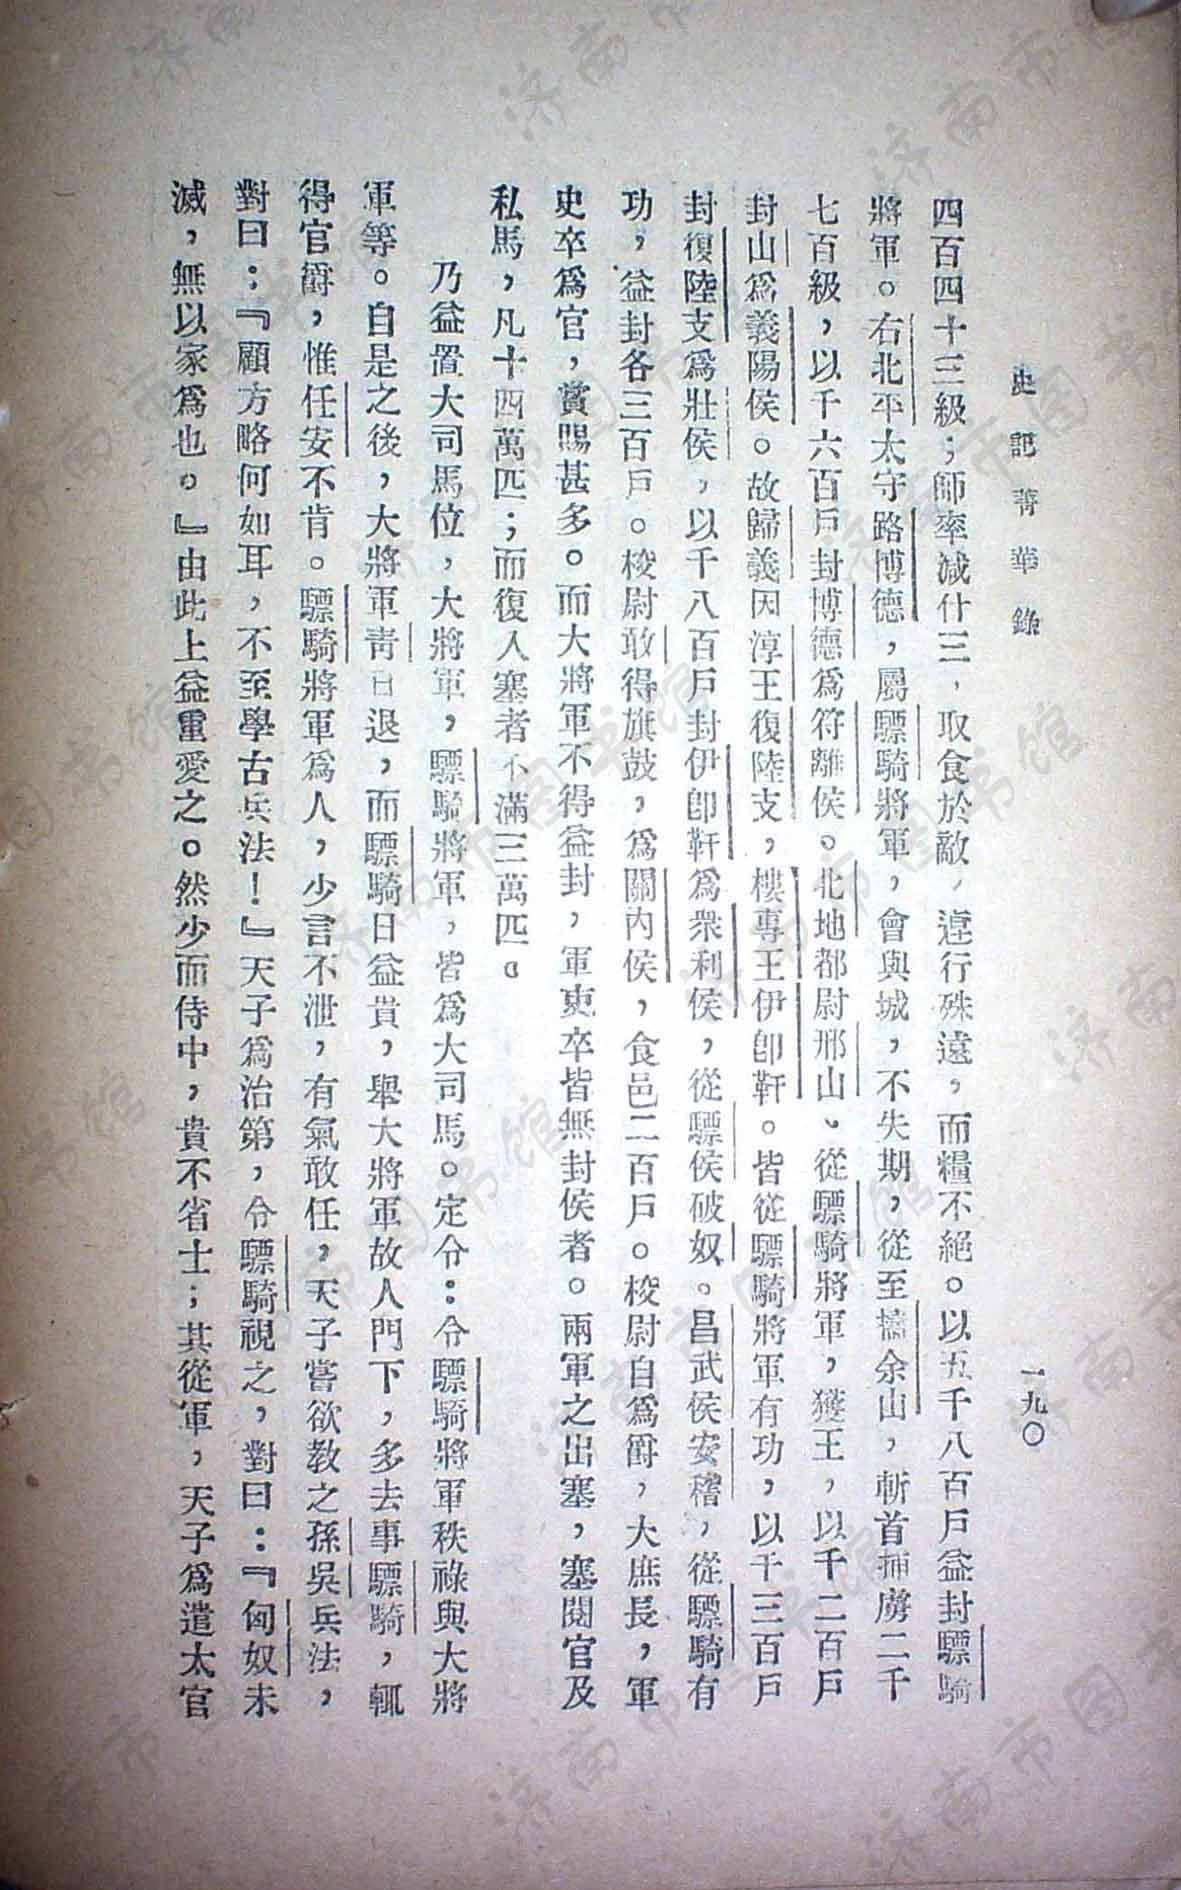 史記菁華錄
一九〇
四百四十三級；師率減什三，取食於敵，逴行殊遠，而糧不絕。以五千八百戶益封驃騎
將軍。右北平太守路博德，屬驃騎將軍，會與城，不失期，從至檮余山，斬首捕虜二千
七百級，以千六百戶封博德爲符離侯。北地都尉邢山、從驃騎將軍，獲王，以千二百戶
封山爲義陽侯。故歸義因淳王復陸支，樓專王伊卽靬。皆從驃騎將軍有功，以千三百戶
封復陸支爲壯侯，以千八百戶封伊卽靬爲衆利侯，從驃侯破奴。昌武侯安稽，從驃騎有
功，益封各三百戶。校尉敢得旗鼓，爲關內侯，食邑二百戶。校尉自爲爵，大庶長，軍
吏卒爲官，賞賜甚多。而大將軍不得益封，軍吏卒皆無封侯者。兩軍之出塞，塞閱官及
私馬，凡十四萬匹；而復入塞者不滿三萬匹。
乃益置大司馬位，大將軍，驃騎將軍，皆爲大司馬。定令：令驃騎將軍秩祿與大將
軍等。自是之後，大將軍靑日退，而驃騎日益貴，舉大將軍故人門下，多去事驃騎，輒
得官爵，惟任安不肯。驃騎將軍爲人，少言不泄，有氣敢任，天子嘗欲教之孫吳兵法，
對曰：『顧方略何如耳，不至學古兵法！』天子爲治第，令驃騎視之，對曰：『匈奴未
滅，無以家爲也。』由此上益重愛之。然少而侍中，貴不省士；其從軍，天子爲遣太官
濟南市图书馆